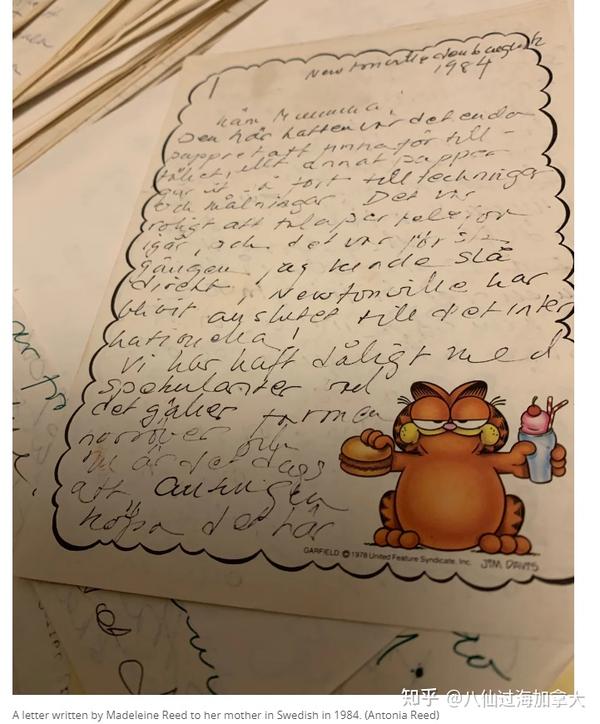 Newtonville den 6 augusti
1984
1
Kära Mamma!
Den här katten var det enda
pappret att finna för till-
fället, allt annat papper
går åt så fort till teckningar
och målningar. Det var
roligt att tala per telefon
igår, och det var första
gången jag kunde slå
direkt, Newtonville har
blivit anslutet till det inter
nationella!
Vi har haft dåligt med
spekulanter vad
det gäller farmen
norröver och
nu är det dags
att antingen
köpa det här
GARFIELD: © 1978 United Feature Syndicate, Inc.
JIM DAVIS
知乎 @八仙过海加拿大
A letter written by Madeleine Reed to her mother in Swedish in 1984. (Antonia Reed)